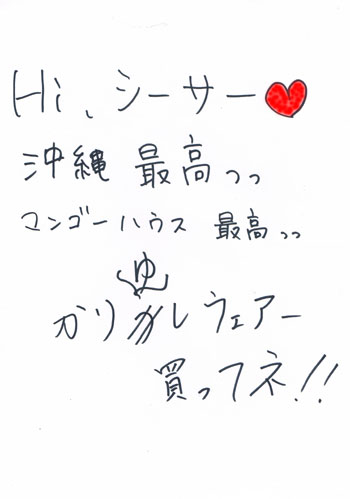 Hi、シーサー❤
沖縄 最高っっ
マンゴーハウス 最高っっ
かりゆしウェアー
買ってネ!!